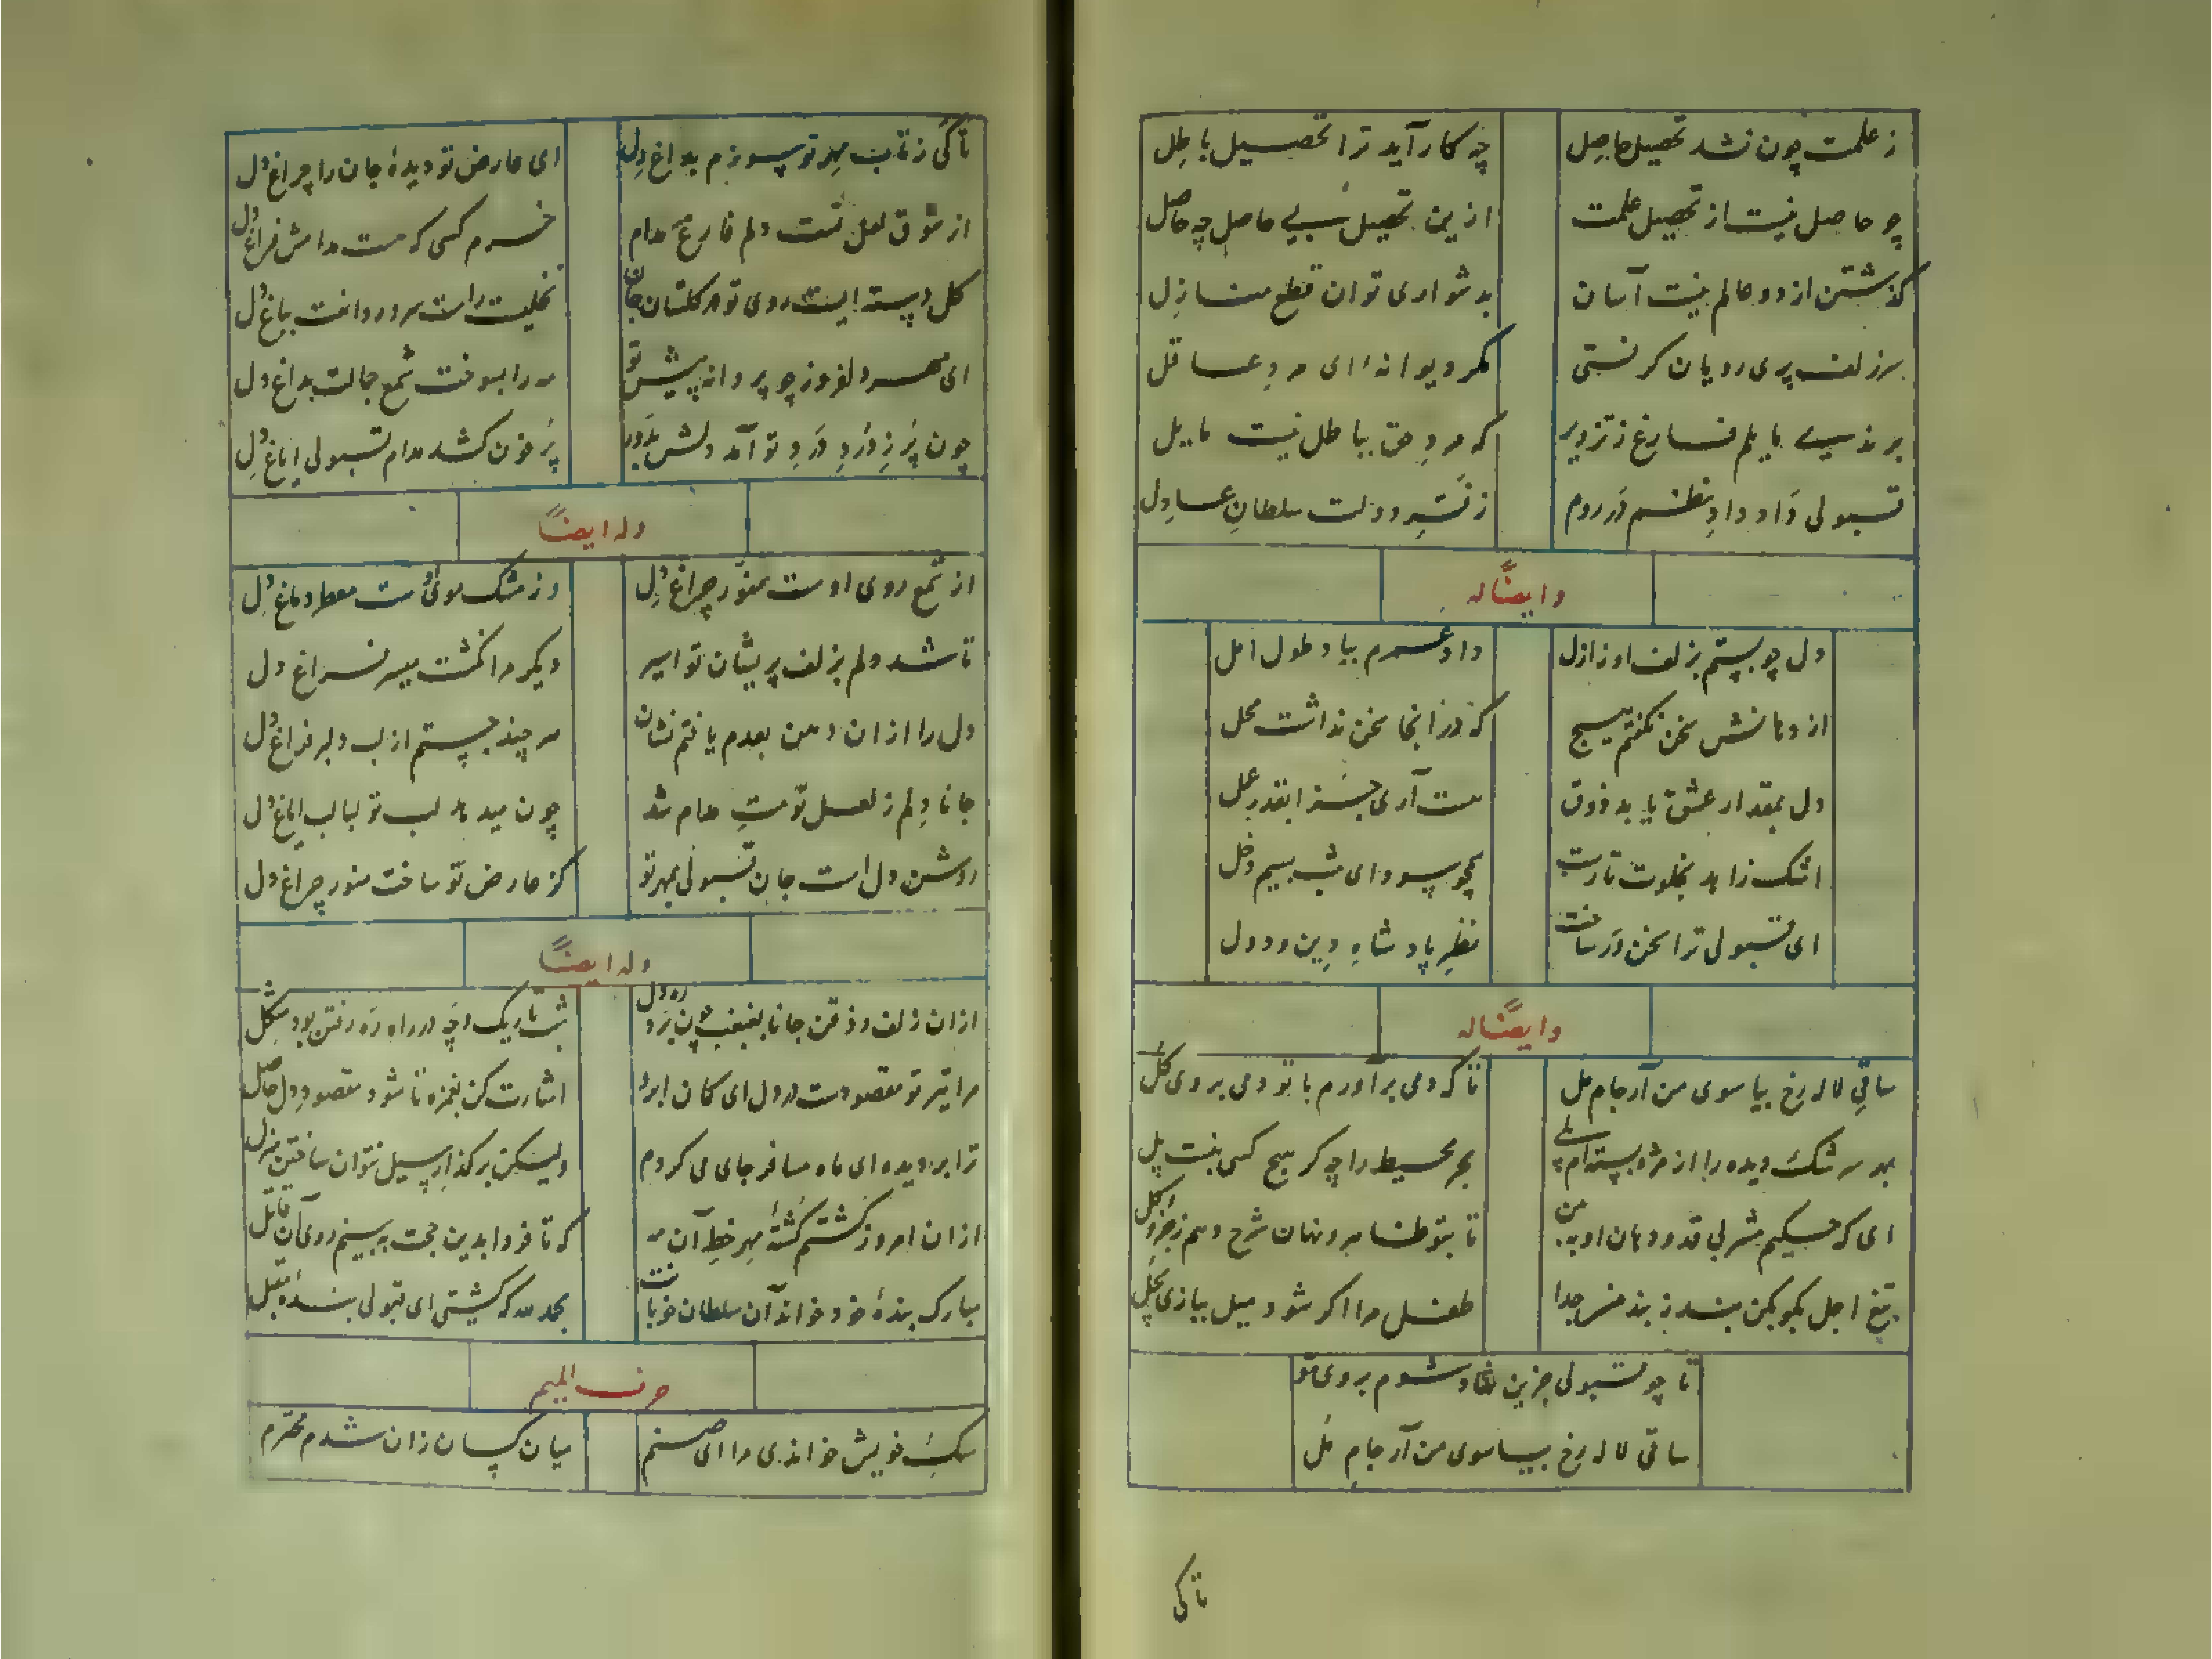 ز علمت چون نشد تحصیل حاصل
چه کار آید ترا تحصیل باطل
چو حاصل نیست از تحصیل علمت
ازین تحصیل بی حاصل چه حاصل
کذشتن از دو عالم نیست آسان
بدشواری توان قطع منازل
بزلف پری رویان کرفتی
مکر دیوانهٔ ای مرد عاقل
فارغ ز تزویر
که مرد حق بباطل نیست مایل
قبولی داد داد نظم در روم
ز فر دولت سلطان عادل
وایضاً له
دل چو بستم بزلف او ز ازل
داد عمرم بباد طول امل
از دهانش سخن نکفتم هیچ
که در انجا سخن نداشت محل
دل بمقدار عشق یابد ذوق
هست آری جزا بقدر عمل
اشک زاهد بخلوت تاریت
همچو سودای شب بسیم دغل
ای قبولی ترا سخن در ساخت
نظر پادشاه دین و دول
وایضاً له
ساقی لاله رخ بیا سوی من آر جام مل
تا که دمی برآورم با تو دمی بروی کل
دیده را از مژه بسته‌ام پلی
بحر محیط را چه کر هیچ کسی نبست پل
ای که حکیم مشربی قد و دهان او ببین
تا بتو ظاهر و نهان شرح دهم ز جزو و کل
تیغ اجل بکو بکن بند ز بند من جدا
طفل مرا اکر شود میل ببازی
تا چو قبولی حزین شاد شوم بروی تو
ساقی لاله رخ بیا سوی من آر جام مل
تاکی
تاکی ز تاب مهر تو سوزم بداغ دل
ای عارض تو دیدهٔ جان را چراغ دل
از شوق لعل تست دلم فارغ مدام
خرم کسی که هست مدامش فراغ دل
کل دسته ایست روی تو در کلستان جان
نخلیست راست سرو روانت بباغ دل
ای مهر دلفروز چو پروانه پیش تو
مه را بسوخت شمع جمالت بداغ دل
چون پر ز درد درد تو آمد دلش بدور
پر خون کشد مدام قبولی ایاغ دل
وله ایضاً
از شمع روی اوست منور چراغ دل
وز مشک موی اوست معطر دماغ دل
تا شد دلم بزلف پریشان تو اسیر
دیکر مرا نکشت میسر فراغ دل
دل را ازان دهن بعدم یافتم نشان
هر چند جستم از لب دلبر فراغ دل
جانا دلم ز لعل تو مست مدام شد
چون میدهد لب تو لبالب ایاغ دل
روشن دل است جان قبولی بمهر تو
کز عارض تو ساخت منور چراغ دل
وله ایضاً
ازان زلف و ذقن جانا بغبغب چون برد ره دل
شب تاریک و چه در راه ره رفتن بود مشکل
مرا تیر تو مقصودست در دل ای کمان ابرو
اشارت کن بغمزه تا شود مقصود دل حاصل
ترا بر دیده ای ماه مسافر جای می کردم
ولیکن بر کذار سیل نتوان ساختن منزل
ازان امروز کشتم کشتهٔ مهر خط آن مه
که تا فردا بدین حجت ببینم روی آن قاتل
مبارک بندهٔ خود خواند آن سلطان خوبانت
بحمدالله که کشتی ای قبولی بندهٔ مقبل
حرف المیم
سک خویش خواندی مرا ای صنم
میان کسان زان شدم محترم